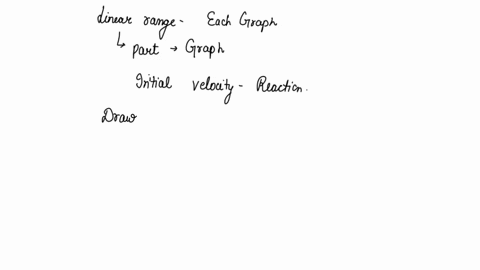 Linear range - Each Graph
↳ part → Graph
Initial velocity - Reaction.
Draw